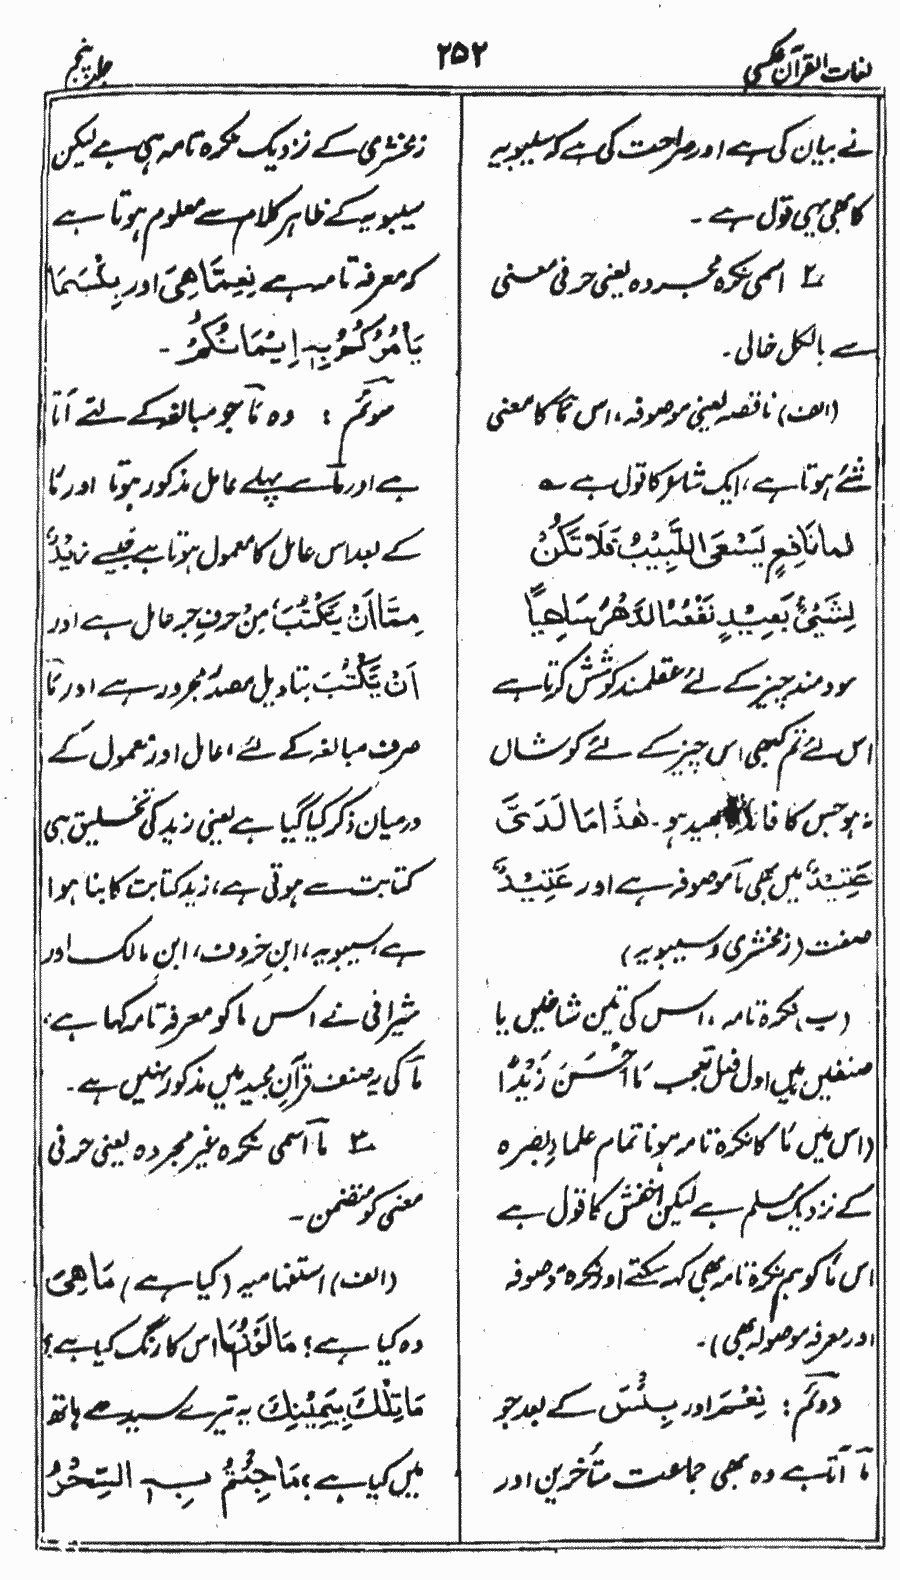 لغات القرآن عکسی
۲۵۲
جلد پنجم
نے بیان کی ہے اور صراحت کی ہے کہ سیبویہ
کا بھی یہی قول ہے ۔
۲ اسمی نکرہ مجردہ یعنی حرفی معنی
سے بالکل خالی ۔
(الف) ناقصہ یعنی موصوفہ ، اس مَا کا معنی
شئے ہوتا ہے ، ایک شاعر کا قول ہے
لما نَافِعٍ يَسْعَى اللَّبِيْبُ فَلَا تَكُنْ
لِشَيْءٍ بَعِيْدٍ نَفْعُهُ الدَّهْرُ سَاعِياً
سود مند چیز کے لئے عقلمند کوشش کرتا ہے
اس لئے تم کبھی اس چیز کے لئے کوشاں
نہ ہو جس کا فائدہ بعید ہو ۔ هٰذَا مَا لَدَيَّ
عَتِيْدٌ میں بھی مَا موصوفہ ہے اور عَتِيْدٌ
صفت (زمخشری و سیبویہ)
(ب) نکرہ تامہ ، اس کی تین شاخیں یا
صنفیں ہیں اول فعل تعجب مَا اَحْسَنَ زَيْدًا
(اس میں مَا کا نکرہ تامہ ہونا تمام علماء بصرہ
کے نزدیک مسلم ہے لیکن اخفش کا قول ہے
اس مَا کو ہم نکرہ تامہ بھی کہہ سکتے اور نکرہ موصوفہ
اور معرفہ موصولہ بھی) ۔
دوئم : نِعْمَ اور بِئْسَ کے بعد جو
مَا آتا ہے وہ بھی جماعت متأخرین اور
زمخشری کے نزدیک نکرہ تامہ ہی ہے لیکن
سیبویہ کے ظاہر کلام سے معلوم ہوتا ہے
کہ معرفہ تامہ ہے نِعِمَّا هِيَ اور بِئْسَمَا
يَأْمُرُكُمْ بِهٖ اِيْمَانُكُمْ ۔
سوئم : وہ مَا جو مبالغہ کے لئے آتا
ہے اور مَا سے پہلے عامل مذکور ہوتا اور مَا
کے بعد اس عامل کا معمول ہوتا ہے جیسے زَيْدٌ
مِمَّا اَنْ يَكْتُبَ ، مِنْ حرفِ جر عامل ہے اور
اَنْ يَّكْتُبَ بتاویل مصدر مجرور ہے اور مَا
صرف مبالغہ کے لئے ، عامل اور معمول کے
درمیان ذکر کیا گیا ہے یعنی زید کی تخلیق ہی
کتابت سے ہوتی ہے ، زید کتابت کا بنا ہوا
ہے ، سیبویہ ، ابنِ خروف ، ابنِ مالک اور
شیرافی نے اس ما کو معرفہ تامہ کہا ہے ،
مَا کی یہ صنف قرآنِ مجید میں مذکور نہیں ہے ۔
۳ مَا اسمی نکرہ غیر مجردہ یعنی حرفی
معنی کو متضمن ۔
(الف) استفہامیہ (کیا ہے) مَا هِيَ
وہ کیا ہے ؟ مَا لَوْنُهَا اس کا رنگ کیا ہے ؟
مَا تِلْكَ بِيَمِيْنِكَ یہ تیرے سیدھے ہاتھ
میں کیا ہے ؛ مَا جِئْتُمْ بِهِ السِّحْرُ